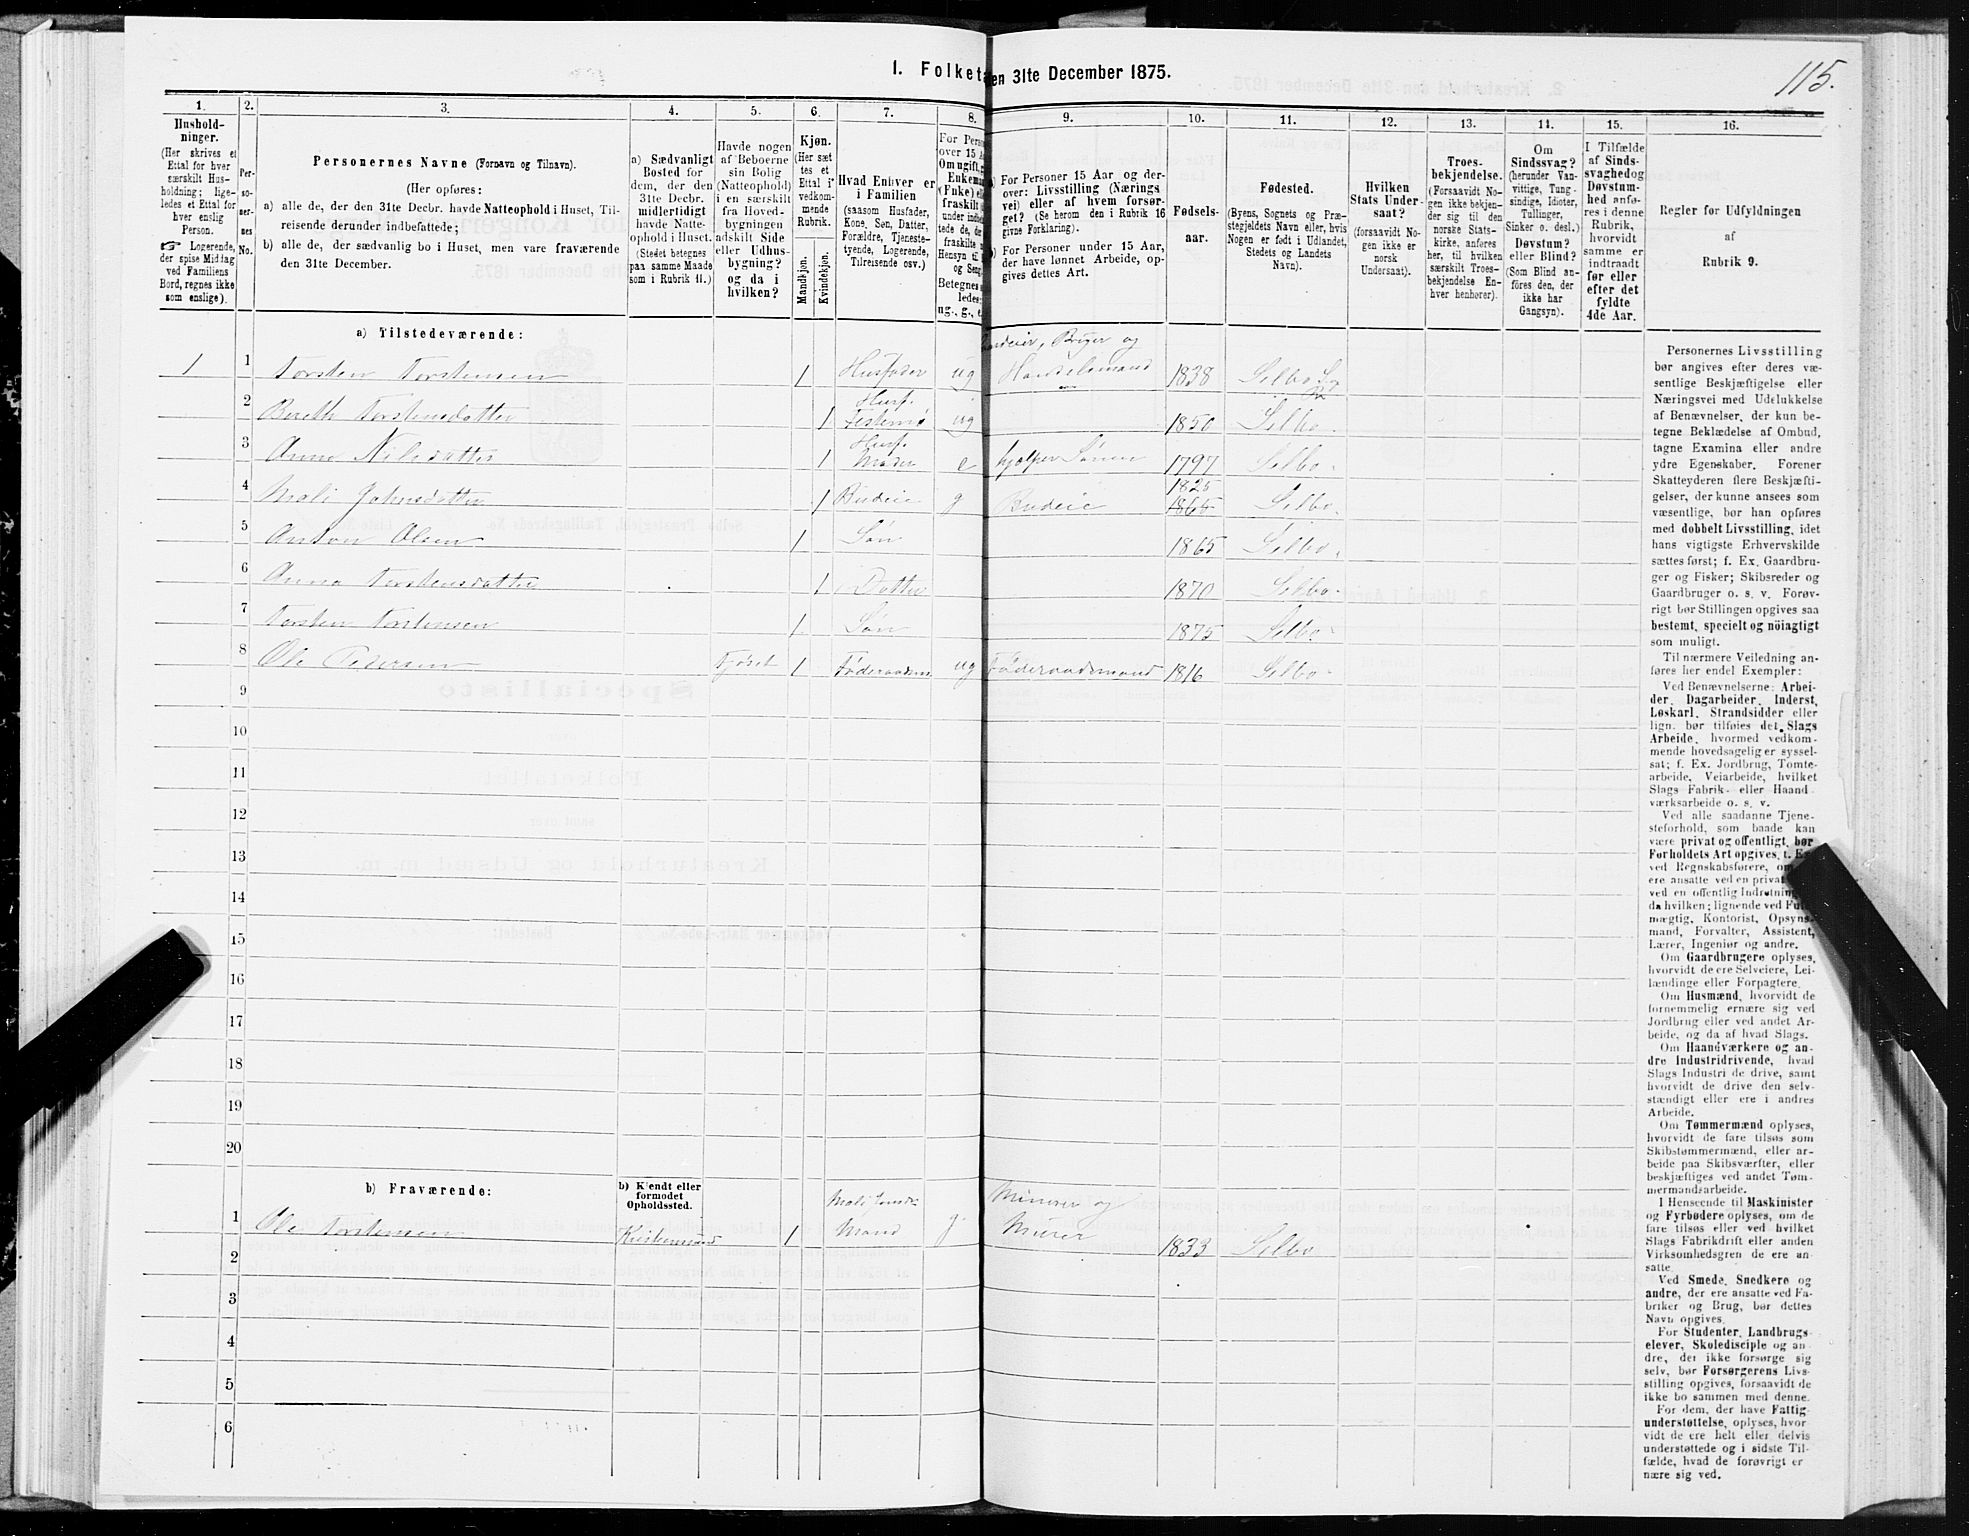 115.
1. Folketa
en 31te December 1875.
1. 2. 3. 4. 5. 6. 7. 8. 9. 10. 11. 12. 13. 14. 15. 16.
Hushold-
ninger.
(Her skrives et
Ettal for hver
særskilt Hus-
holdning; lige-
ledes et Ettal for
hver enslig
Person.
☞ Logerende,
der spise Middag
ved Familiens
Bord, regnes ikke
som enslige).
Per-
so-
ner-
nes
No.
Personernes Navne (Fornavn og Tilnavn).
(Her opføres:
a) alle de, der den 31te Decbr. havde Natteophold i Huset, Til-
reisende derunder indbefattede;
b) alle de, der sædvanlig bo i Huset, men vare fraværende
den 31te December.
a) Sædvanligt
Bosted for
dem, der den
31te Decbr.
midlertidigt
havde Natte-
ophold i Huset.
(Stedet betegnes
paa samme Maade
som i Rubrik 11.)
Havde nogen
af Beboerne
sin Bolig
(Natteophold)
i en særskilt
fra Hoved-
bygningen
adskilt Side
eller Udhus-
bygning?
og da i
hvilken?
Kjøn.
(Her sæt
tes et
Ettal i
vedkom-
mende
Rubrik.
Mandkjøn.
Kvindekjøn.
Hvad Enhver er
i Familien
(saasom Husfader,
Kone, Søn, Datter,
Forældre, Tjeneste-
tyende, Logerende,
Tilreisende osv.)
For Pers
over 15 A
Om ugift,
Enkema
(Enke) e
fraskilt
under indbe
tede de, d
fraskilte
Hensyn til
og Seng
Betegnes
ledes:
ug., g., e
a) For Personer 15 Aar og der-
over: Livsstilling (Nærings
vei) eller af hvem forsør-
get? (Se herom den i Rubrik 16
givne Forklaring).
b) For Personer under 15 Aar,
der have lønnet Arbeide, op-
gives dettes Art.
Fødsels-
aar.
Fødested.
(Byens, Sognets og Præ-
stegjeldets Navn eller, hvis
Nogen er født i Udlandet,
Stedets og Landets
Navn).
Hvilken
Stats Under-
saat?
(forsaavidt No-
gen ikke er
norsk
Undersaat).
Troes-
bekjendelse.
(Forsaavidt No-
gen ikke bekjen-
der sig til den
norske Stats-
kirke, anføres
her, til hvilken
særskilt Troes-
bekjendelse En-
hver henhører).
Om
Sindssvag?
(herunder Van-
vittige, Tung-
sindige, Idioter,
Tullinger,
Sinker o. desl.)
Døvstum?
eller Blind?
(Som Blind an-
føres den, der
ikke har
Gangsyn).
I Tilfælde
af Sinds-
svaghed og
Døvstum-
hed anfø-
res i denne
Rubrik,
hvorvidt
samme er
indtraadt
før eller
efter det
fyldte
4de Aar.
Regler for Udfyldningen
af
Rubrik 9.
a) Tilstedeværende:
Gaardeier, Bruger og
1 1 Torsten Torstensen 1 Husfader ug Handelsmand 1838 Selbo
2 Bereth Torstensdatter 1 Husf. Festemø ug 1850 Selbo
3 Anne Nilsdatter 1 Husf. Moder e hjælper Sønnen 1797 Selbo
1825
4 Mali Jahnsdatter 1 Budeie g Budeie 1865 Selbo
5 Anton Olsen 1 Søn 1865 Selbo
6 Anna Torstensdatter 1 Datter 1870 Selbo
7 Torsten Torstensen 1 Søn 1875 Selbo
8 Ole Pedersen Fjøset 1 Føderaadsm. ug Føderaadsmand 1816 Selbo
9
10
11
12
13
14
15
16
17
18
19
20
b) Fraværende:
b) Kjendt eller
formodet
Opholdssted.
1 Ole Torstensen Kristiansund 1 Mand g Minerer og Murer 1833 Selbo
2
3
4
5
6
Personernes Livsstilling
bør angives efter deres væ-
sentlige Beskjæftigelse eller
Næringsvei med Udelukkelse
af Benævnelser, der kun be-
tegne Beklædelse af Ombud,
tagne Examina eller andre
ydre Egenskaber. Forener
Skatteyderen flere Beskjæfti-
gelser, der kunne ansees som
væsentlige, bør han opføres
med dobbelt Livsstilling, idet
hans vigtigste Erhvervskilde
sættes først; f. Ex. Gaardbru-
ger og Fisker; Skibsreder og
Gaardbruger o. s. v. Forøv-
rigt bør Stillingen opgives saa
bestemt, specielt og nöiagtigt
som muligt.
Til nærmere Veiledning an-
føres her endel Exempler:
Ved Benævnelserne: Arbei-
der, Dagarbeider, Inderst,
Løskarl, Strandsidder eller
lign. bør tilføies det Slags
Arbeide, hvormed vedkom-
mende hovedsagelig er syssel-
sat; f. Ex. Jordbrug, Tomte-
arbeide, Veiarbeide, hvilket
Slags Fabrik- eller Haand-
værksarbeide o. s. v.
Ved alle saadanne Tjene-
steforhold, som baade kan
være privat og offentligt, bør
Forholdets Art opgives, t. Ex.
ved Regnskabsførere, om
ere ansatte ved en privat
ved en offentlig Indretning
da hvilken; lignende ved Fuld-
mægtig, Kontorist, Opsyns-
mand, Forvalter, Assistent,
Lærer, Ingeniør og andre.
Om Gaardbrugere oplyses,
hvorvidt de ere Selveiere, Lei-
lændinge eller Forpagtere.
Om Husmænd, hvorvidt de
fornemmelig ernære sig ved
Jordbrug eller ved andet Ar-
beide, og da af hvad Slags.
Om Haandværkere og an-
dre Industridrivende, hvad
Slags Industri de drive, samt
hvorvidt de drive den selv-
stændigt eller ere i andres
Arbeide.
Om Tømmermænd oplyses,
hvorvidt de fare tilsøs som
Skibstømmermænd, eller ar-
beide paa Skibsværfter, eller
beskjæftiges ved andet Tøm-
mermandsarbeide.
I Henseende til Maskinister
og Fyrbødere oplyses, om de
fare tilsøs eller ved hvilket
Slags Fabrikdrift eller anden
Virksomhedsgren de ere an-
satte.
Ved Smede, Snedkere og
andre, der ere ansatte ved Fa-
briker og Brug, bør dettes
Navn opgives.
For Studenter, Landbrugs-
elever, Skoledisciple og an-
dre, der ikke forsørge sig
selv, bør Forsørgerens Livs-
stilling opgives, forsaavidt de
ikke bo sammen med denne.
For dem, der have Fattig-
understøttelse, oplyses, hvor-
vidt de ere helt eller delvis
understøttede og i sidste Til-
fælde, hvad de forøvrigt er
nære sig ved.